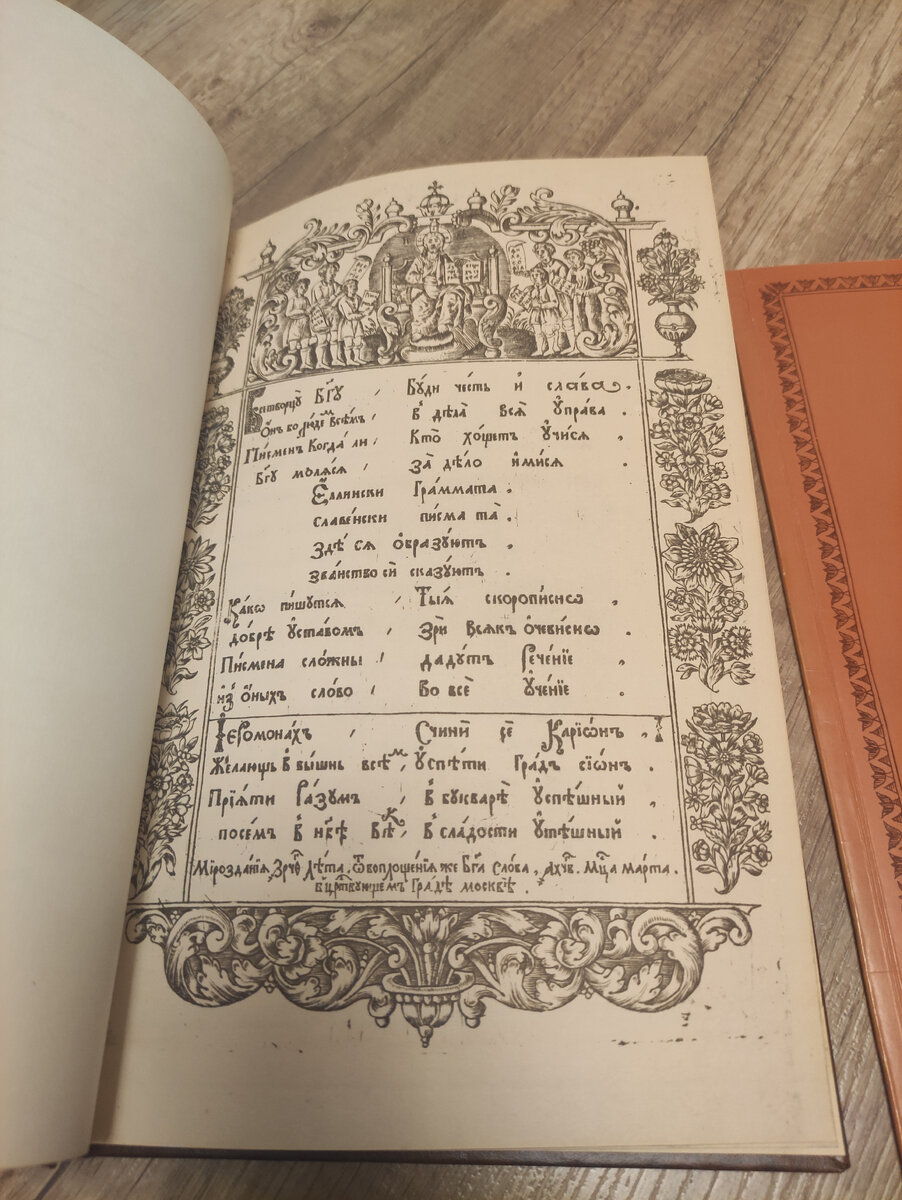 Всетворцꙋ Бг҃ꙋ , Бꙋди честь и҆ сла́ва .
Ѻ҆нъ бо людемъ всѣмъ , в дѣла̀ всѧ̑ ᲂу҆права .
Писменъ когда ли , Кто̀ хо́щетъ ᲂу҆чи́сѧ ,
Бг҃ꙋ молѧ́сѧ , за̀ дѣ́ло и҆ми́сѧ .
Е҆ллински граммата .
славе́нски писмата̀ .
здѣ́ сѧ ѻ҆бразꙋ́ютъ ,
зва́нство сѝ сказꙋ́ютъ .
Ка́кѡ пи́шꙋтсѧ , Ты́ѧ скоропи́снѡ ,
до́брѣ ᲂу҆ста́вомъ , Зрѝ всѧ́къ ѻ҆чеви́снѡ .
Пи́смена сло́жны , даду́тъ рече́нїе ,
и҆з̾ ѻ҆́ныхъ сло́во , Бо всѐ ᲂу҆че́нїе .
І҆еромона́хъ , Счини́ сѐ Карїѡ́нъ ,
Жела́ющь в вы́шнь всѣ́мъ , ᲂу҆спѣ́ти гра́дъ сїѡ́нъ .
Прїѧ́ти ра́зꙋмъ , в бꙋкварѣ̀ ᲂу҆спѣ́шный ,
посе́мъ в нб҃ѣ вѣ́къ , в сла́дости ᲂу҆тѣ́шный .
Мирозда́нїѧ , лѣ́та , ѿ воплоще́нїѧ же Бг҃а Сло́ва , мц҃а ма́рта .
в ца́рствꙋющемъ гра́дѣ москвѣ̀ .